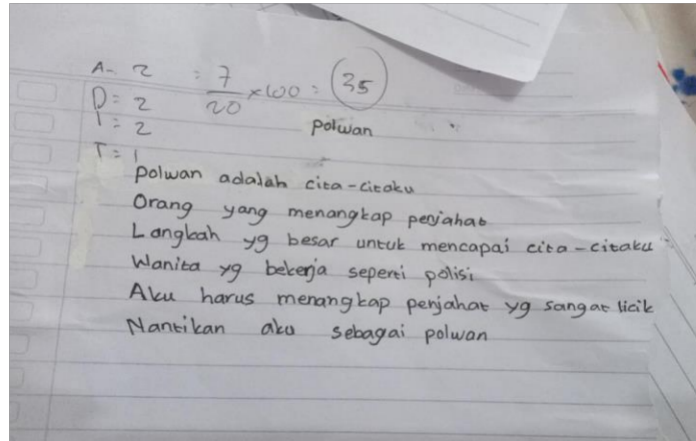 A- 2 : 7/20 x 100 = 35
D = 2
I = 2
Polwan
T = 1
Polwan adalah cita-citaku
Orang yang menangkap penjahat
Langkah yg besar untuk mencapai cita-citaku
Wanita yg bekerja seperti polisi
Aku harus menangkap penjahat yg sangat licik
Nantikan aku sebagai polwan